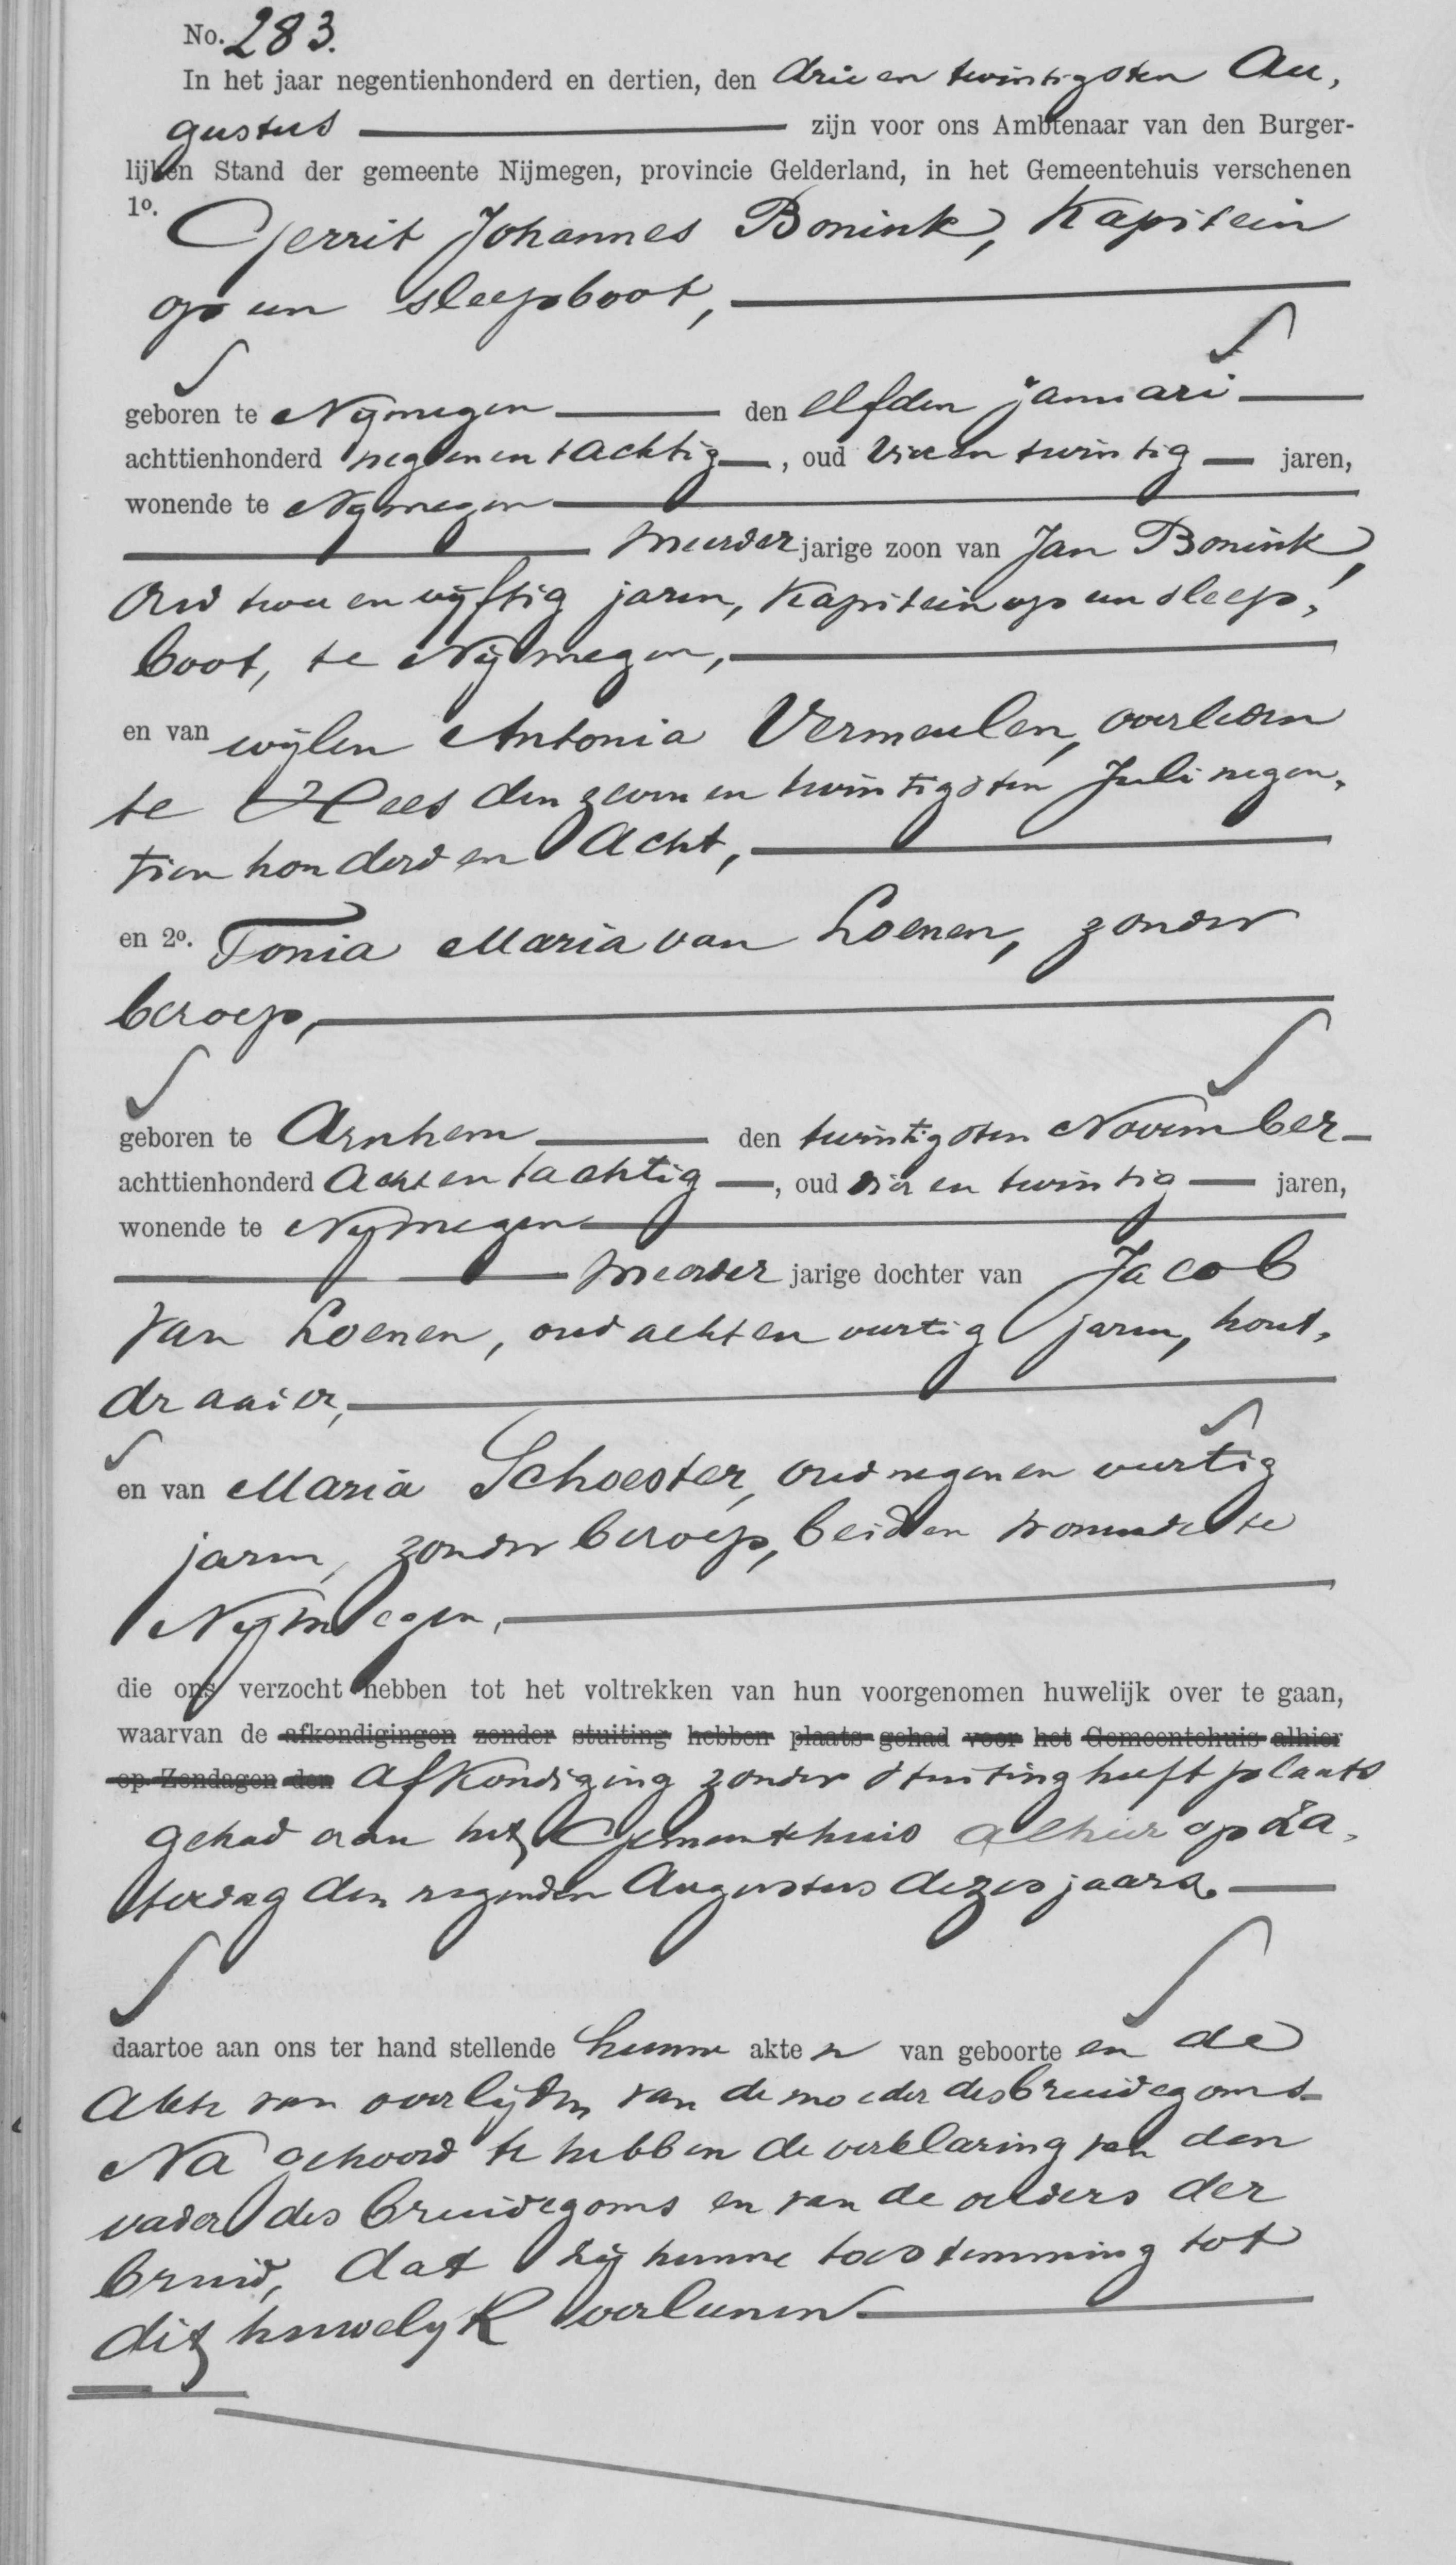 No. 283.
In het jaar negentienhonderd en dertien, den drie en twintigsten Au,
gustus zijn voor ons Ambtenaar van den Burger-
lijken Stand der gemeente Nijmegen, provincie Gelderland, in het Gemeentehuis verschenen
1o. Gerrit Johannes Bonink, Kapitein
op een sleepboot,
geboren te Nijmegen den elfden januari
achttienhonderd negen en tachtig, oud vier en twintig jaren,
wonende te Nijmegen
meerderjarige zoon van Jan Bonink,
oud twee en vijftig jaren, Kapitein op een sleep,
boot, te Nijmegen,
en van wijlen Antonia Vermeulen, overleden
te Hees den zeven en twintigsten Juli negen,
tien honderd en acht,
en 2o. Tonia Maria van Loenen, zonder
beroep,
geboren te Arnhem den twintigsten November
achttienhonderd acht en tachtig, oud vier en twintig jaren,
wonende te Nijmegen
meerder jarige dochter van Jacob
van Loenen, oud acht en veertig jaren, hout,
draaier,
en van Maria Schoester, oud negen en veertig
jaren, zonder beroep, beiden wonende te
Nijmegen,
die ons verzocht hebben tot het voltrekken van hun voorgenomen huwelijk over te gaan,
waarvan de afkondigingen zonder stuiting hebben plaats gehad voor het Gemeentehuis alhier
op Zondagen den afkondiging zonder stuiting heeft plaats
gehad aan het Gemeentehuis alhier op Za,
terdag den negenden Augustus dezes jaars.
daartoe aan ons ter hand stellende hunne akten van geboorte en de
akte van overlijden van de moeder des bruidegoms
Na gehoord te hebben de verklaring van den
vader des bruidegoms en van de ouders der
bruid, dat zij hunne toestemming tot
dit huwelijk verleenen